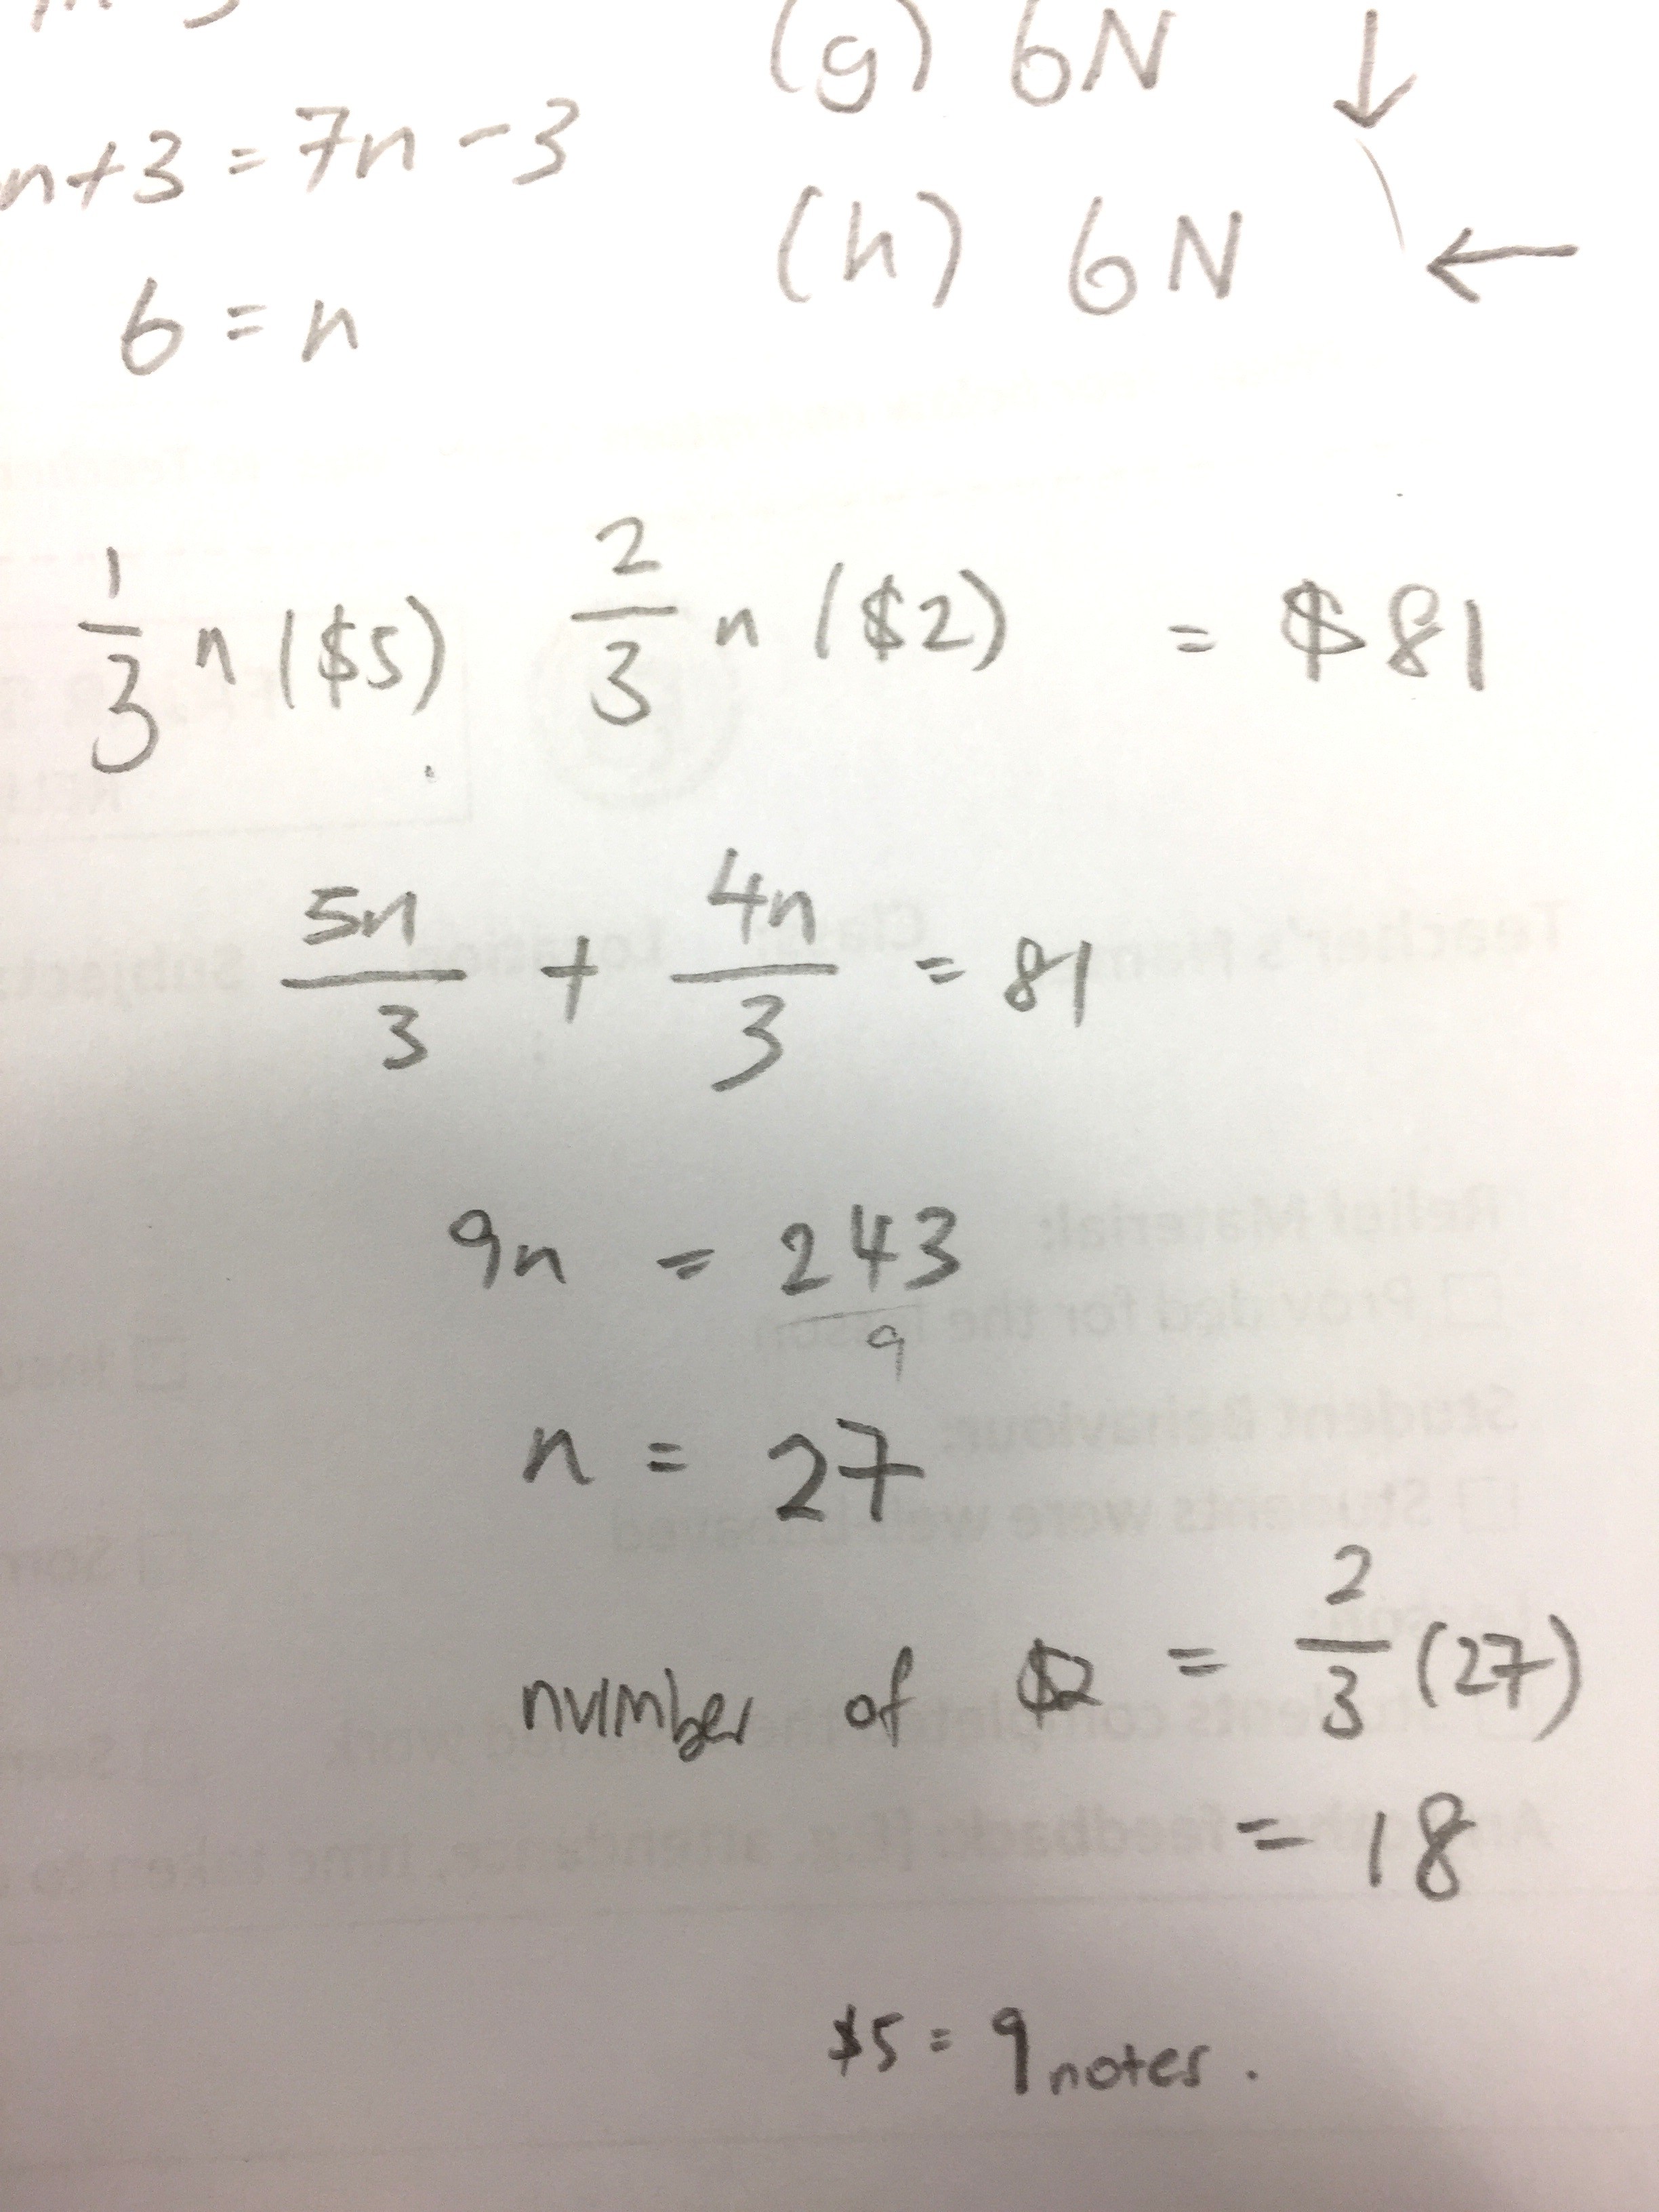 (g) 6N ↓
n+3 = 7n - 3
(h) 6N ←
6 = n
1/3 n ($5) 2/3 n ($2) = $81
5n/3 + 4n/3 = 81
9n = 243/9
n = 27
number of $2 = 2/3 (27)
= 18
$5 = 9 notes.